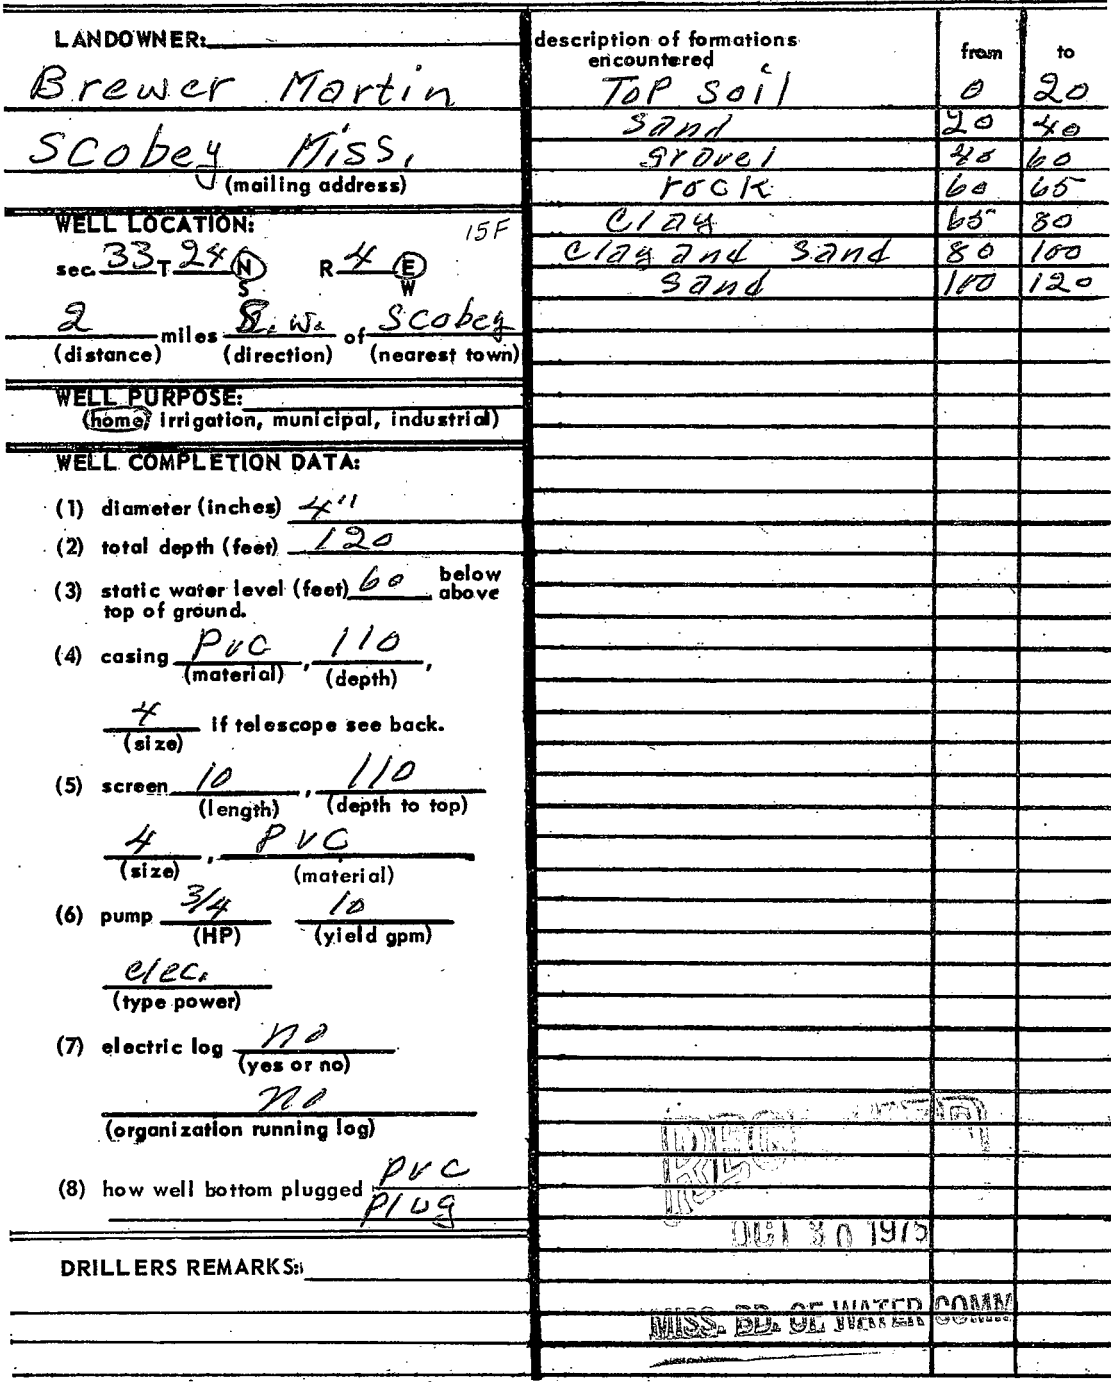 LANDOWNER:
Brewer Martin
Scobey Miss,
(mailing address)
WELL LOCATION: 15F
sec. 33 T 24 N R 4 E
S W
2 miles S. W. of Scobey
(distance) (direction) (nearest town)
WELL PURPOSE:
(home, irrigation, municipal, industrial)
WELL COMPLETION DATA:
(1) diameter (inches) 4"
(2) total depth (feet) 120
(3) static water level (feet) 60 below
above
top of ground.
(4) casing PVC, 110,
(material) (depth)
4 if telescope see back.
(size)
(5) screen 10, 110
(length) (depth to top)
4, PVC
(size) (material)
(6) pump 3/4 10
(HP) (yield gpm)
elec.
(type power)
(7) electric log no
(yes or no)
no
(organization running log)
(8) how well bottom plugged PVC
Plug
DRILLERS REMARKS:
description of formations from to
encountered
Top Soil 0 20
Sand 20 40
gravel 40 60
rock 60 65
Clay 65 80
Clay and Sand 80 100
Sand 100 120
OCT 30 1975
MISS. BD. OF WATER COMM